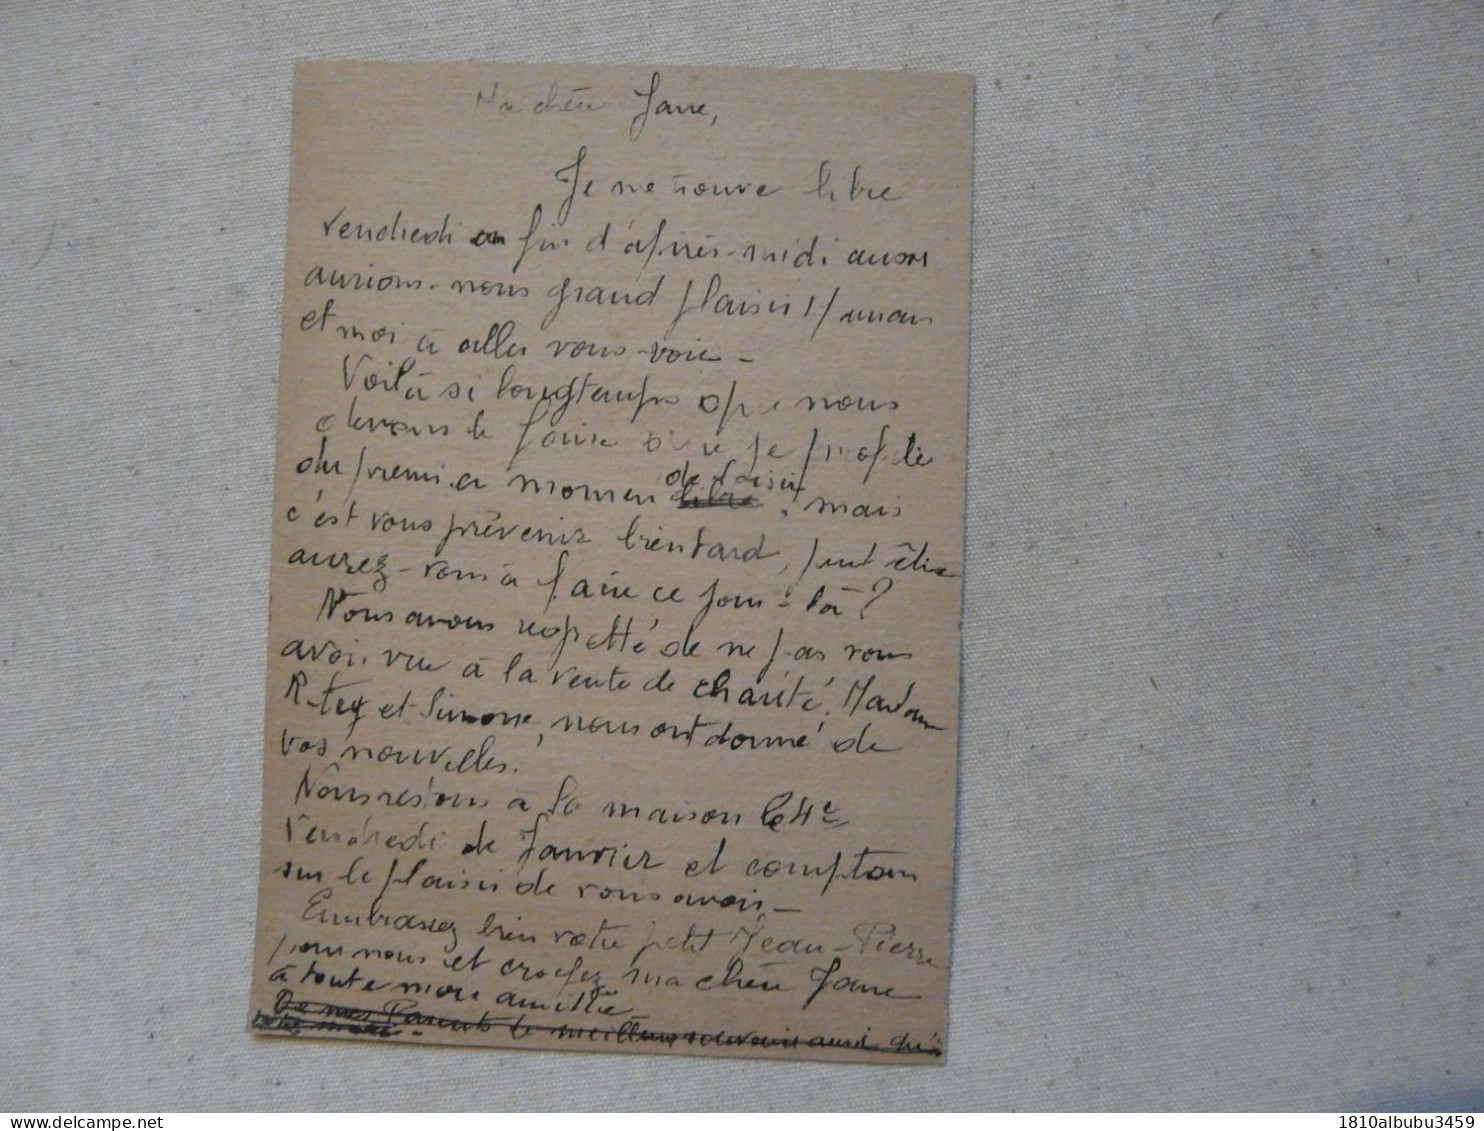 Ma chère Jane,
Je me trouve libre
vendredi en fin d'après-midi aussi
aurions-nous grand plaisir
et moi à aller vous voir -
Voilà si longtemps que nous
devons le faire que je profite
du premier momen de loisir libre, mais
c'est vous prévenir bien tard, peut être
aurez-vous à faire ce jour-là?
Nous avons regretté de ne pas vous
avoir vue à la vente de charité. Madame
et Simone, nous ont donné de
vos nouvelles.
Nous restons à la maison le 4e
Vendredi de Janvier et comptons
sur le plaisir de vous avoir -
Embrassez bien votre petit Jean-Pierre
pour nous et croyez, ma chère Jane
à toute mon amitié -
De mes Parents le meilleur souvenir ainsi qu'à
votre mari -
1810albubu3459